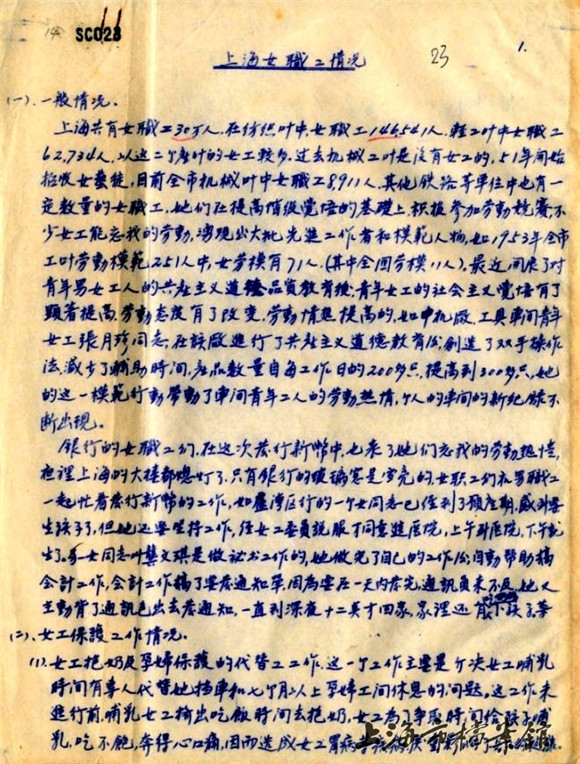 SC028
23
1.
上海女職工情况
(一)、一般情况。
上海共有女職工30万人、在纺织叶中女職工146541人、輕工叶中女職工
62,734人、以这二个產叶的女工较多、过去机械工叶是没有女工的、51年開始
招收女藝徒、目前全市机械叶中女職工8,911人、其他铁路等單位中也有一
定数量的女職工、她们在提高階级覺悟的基礎上、积极参加劳動競賽、不
少女工能忘我的劳動、湧现出大批先進工作者和模範人物、如1953年全市
工叶劳動模範251人中、女劳模有71人、(其中全国劳模11人)、最近開展了对
青年男女工人的共產主义道德品質教育後、青年女工的社会主义覺悟有了
顯著提高、劳動态度有了改变、劳動情热提高的、如中机廠、工具車间青年
女工張月珍同志、在該廠進行了共產主义道德教育後創造了双手操作
法、减少了輔助時间、產品数量自每工作日的200多只、提高到300多只、她
的这一模範行動带動了車间青年工人的劳動热情、个人的車间的新纪錄不
断出現。
銀行的女職工们、在这次發行新幣中、也表了她们忘我的劳動热情、
夜裡上海的大樓都熄灯了、只有銀行的玻璃窓是雪亮的、女职工们和男職工
一起忙着發行新幣的工作、如盧湾区行的一个女同志已経到了預產期、感到要
生孩子了、但她还要坚持工作、経女工委員説服才同意進医院、上午到医院、下午就
生了。另一女同志叫龔文琪是做秘书工作的、她做完了自己的工作後自動帮助搞
会計工作、会計工作搞了要發通知單、因為要在一天内發完、通訊員来不及、她又
主動背了通訊包出去發通知、一直到深夜十二点才回家、家裡还
(二)、女工保護工作情况。
(1)、女工抱奶及孕婦保護的代替工工作、这一个工作主要是解决女工哺乳
時间有專人代替她擋車和七个月以上孕婦工间休息的问题、这工作未
進行前、哺乳女工擠出吃飯時间去抱奶、女工為了争取時间给孩子哺
乳、吃不飽、奔得心口痛、因而造成女工胃病
上海市檔案館